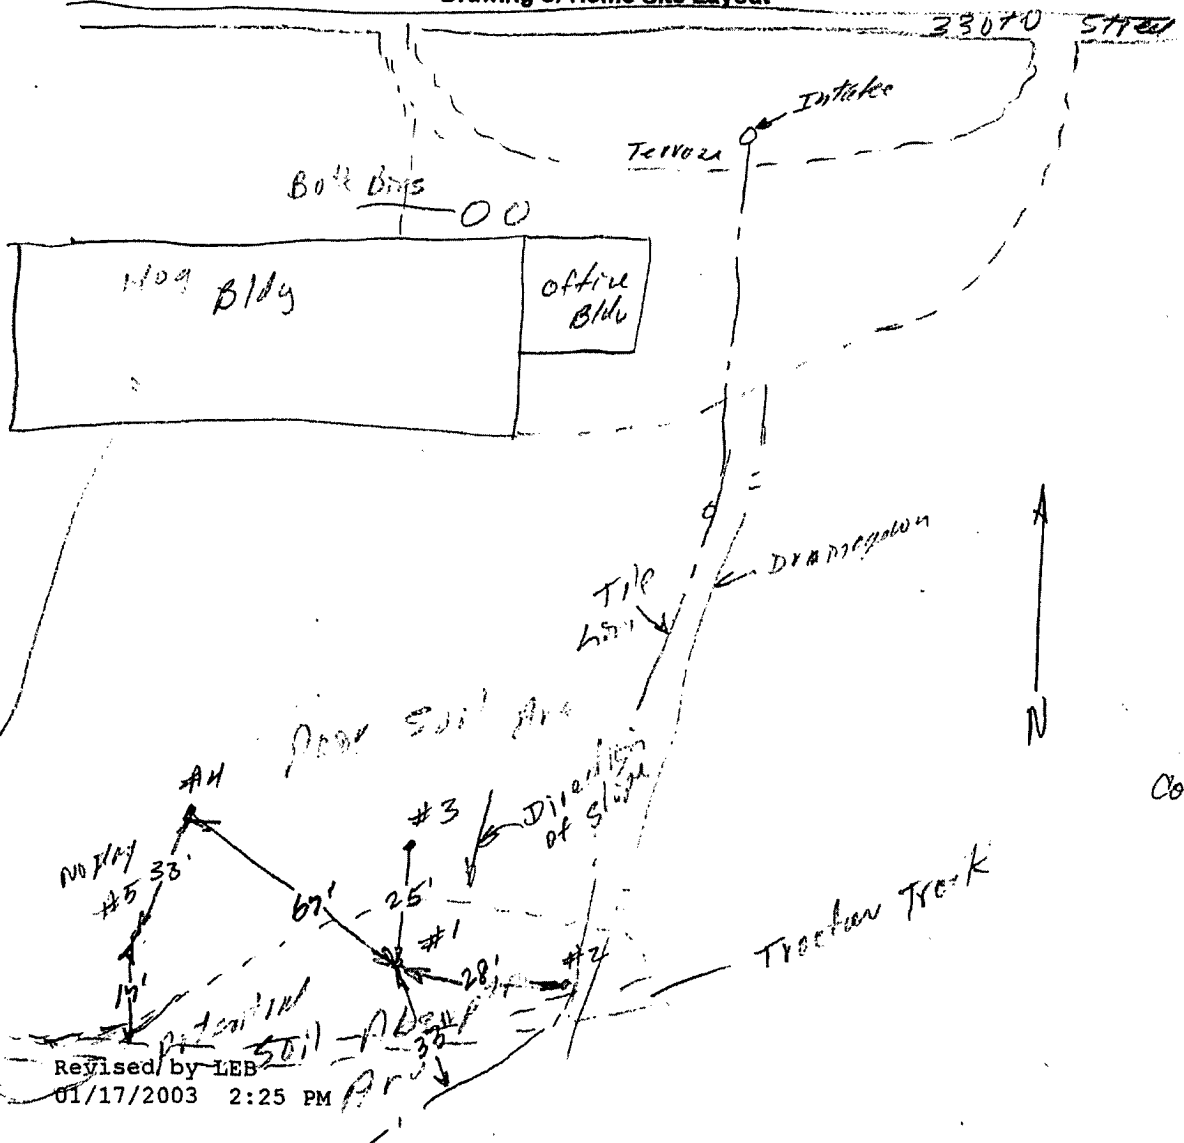 Drawing of Home Site Layout
330th Street
Intake
Terrace
Bulk Bins
Hog Bldg
Office
Bldg
Drainage
Tile
Line
A
N
Poor Soil Area
Direction
of Slope
#4
#3
33'
#5
67'
25'
#1
28'
#2
17'
33"
Tractor Track
Co
Potential
Soil
Revised by LEB
01/17/2003 2:25 PM